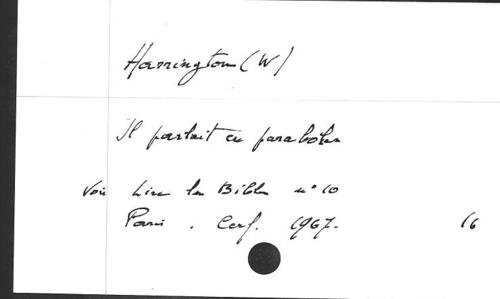 Harrington (W)
Il parlait en paraboles
Voir Lire la Bible n° 10
Paris . Cerf. 1967. 16